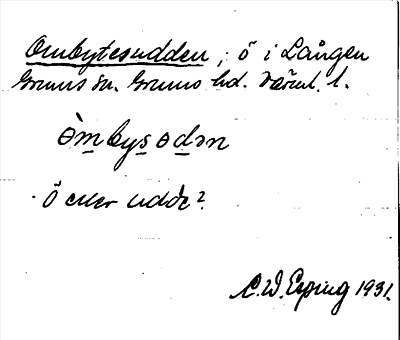 Ombytesudden, ö i Lången
Grums sn. Grums hd. Värml. l.
òmbysodən
Ö eller udde?
C. W. Esping 1931.